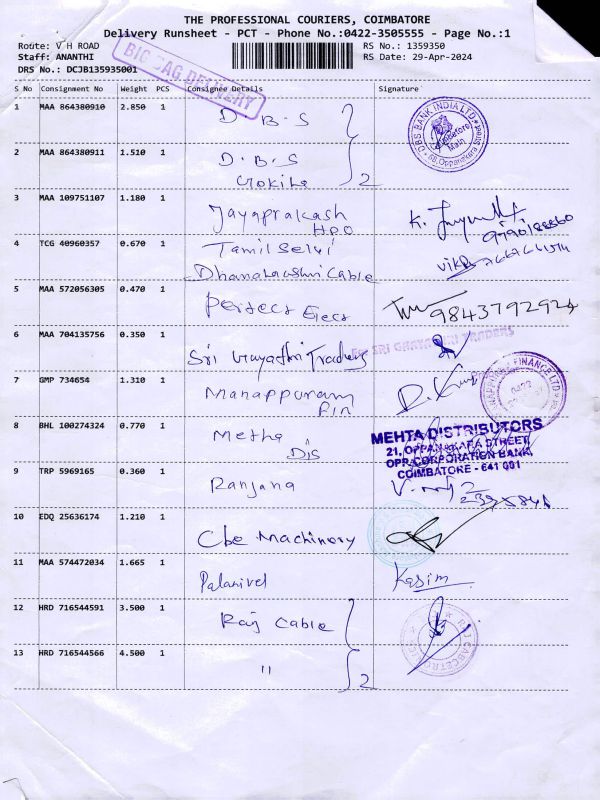 THE PROFESSIONAL COURIERS, COIMBATORE
Delivery Runsheet - PCT - Phone No.:0422-3505555 - Page No.:1
Route: V H ROAD
RS No.: 1359350
Staff: ANANTHI
RS Date: 29-Apr-2024
DRS No.: DCJB135935001
BIG BAG DELIVERY
S No Consignment No Weight PCS Consignee Details Signature
1 MAA 864380910 2.850 1 D.B.S
DBS BANK INDIA LTD
Coimbatore Main
2 MAA 864380911 1.510 1 D.B.S
Gokila 2
3 MAA 109751107 1.180 1 Jayaprakash
HPO
4 TCG 40960357 0.670 1 Tamil Selvi
Dhanalakshmi Cable
5 MAA 572056305 0.470 1 Perfect Elecs 9843792924
6 MAA 704135756 0.350 1 Sri Gayathri Traders
For SRI GHAYATHRI TRADERS
7 GMP 734654 1.310 1 Manappuram
Fin
8 BHL 100274324 0.770 1 Metha
Dis
MEHTA DISTRIBUTORS
21, OPPANAKARA STREET,
OPP. CORPORATION BANK,
COIMBATORE - 641 001
9 TRP 5969165 0.360 1 Ranjana
10 EDQ 25636174 1.210 1 Cbe Machinery
11 MAA 574472034 1.665 1 Palanivel Kasim
12 HRD 716544591 3.500 1 Raj Cable
13 HRD 716544566 4.500 1 " 2